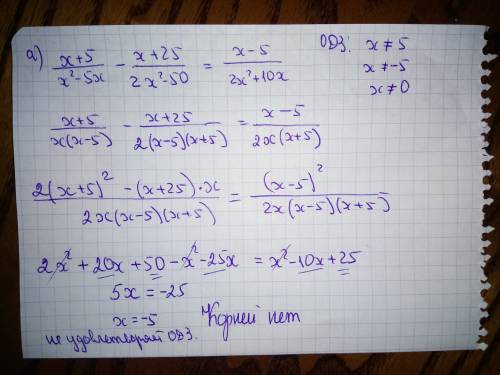 а) (x+5)/(x²-5x) - (x+25)/(2x²-50) = (x-5)/(2x²+10x) ОДЗ: x≠5
x≠-5
x≠0
(x+5)/(x(x-5)) - (x+25)/(2(x-5)(x+5)) = (x-5)/(2x(x+5))
(2(x+5)² -(x+25)·x)/(2x(x-5)(x+5)) = (x-5)²/(2x(x-5)(x+5))
2x²+20x+50-x²-25x = x²-10x+25
5x=-25
x=-5 Корней нет
не удовлетворяй ОДЗ.